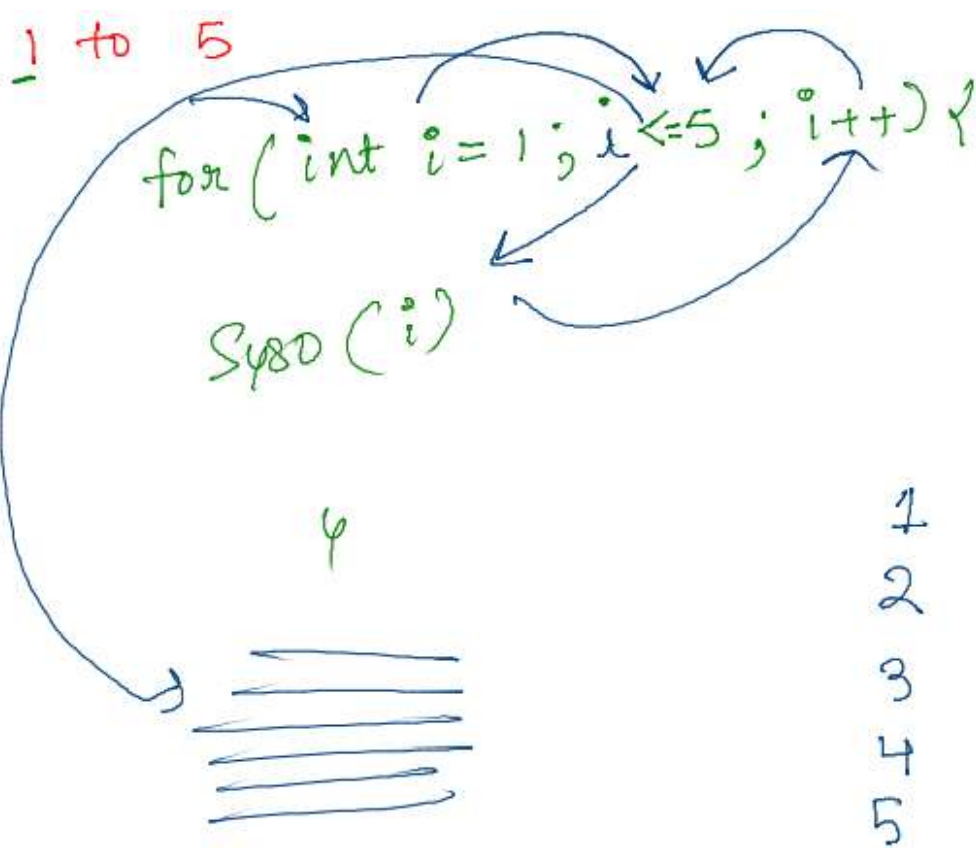 1 to 5
for ( int i = 1 ; i <=5 ; i++) {
Syso ( i )
}
1
2
3
4
5